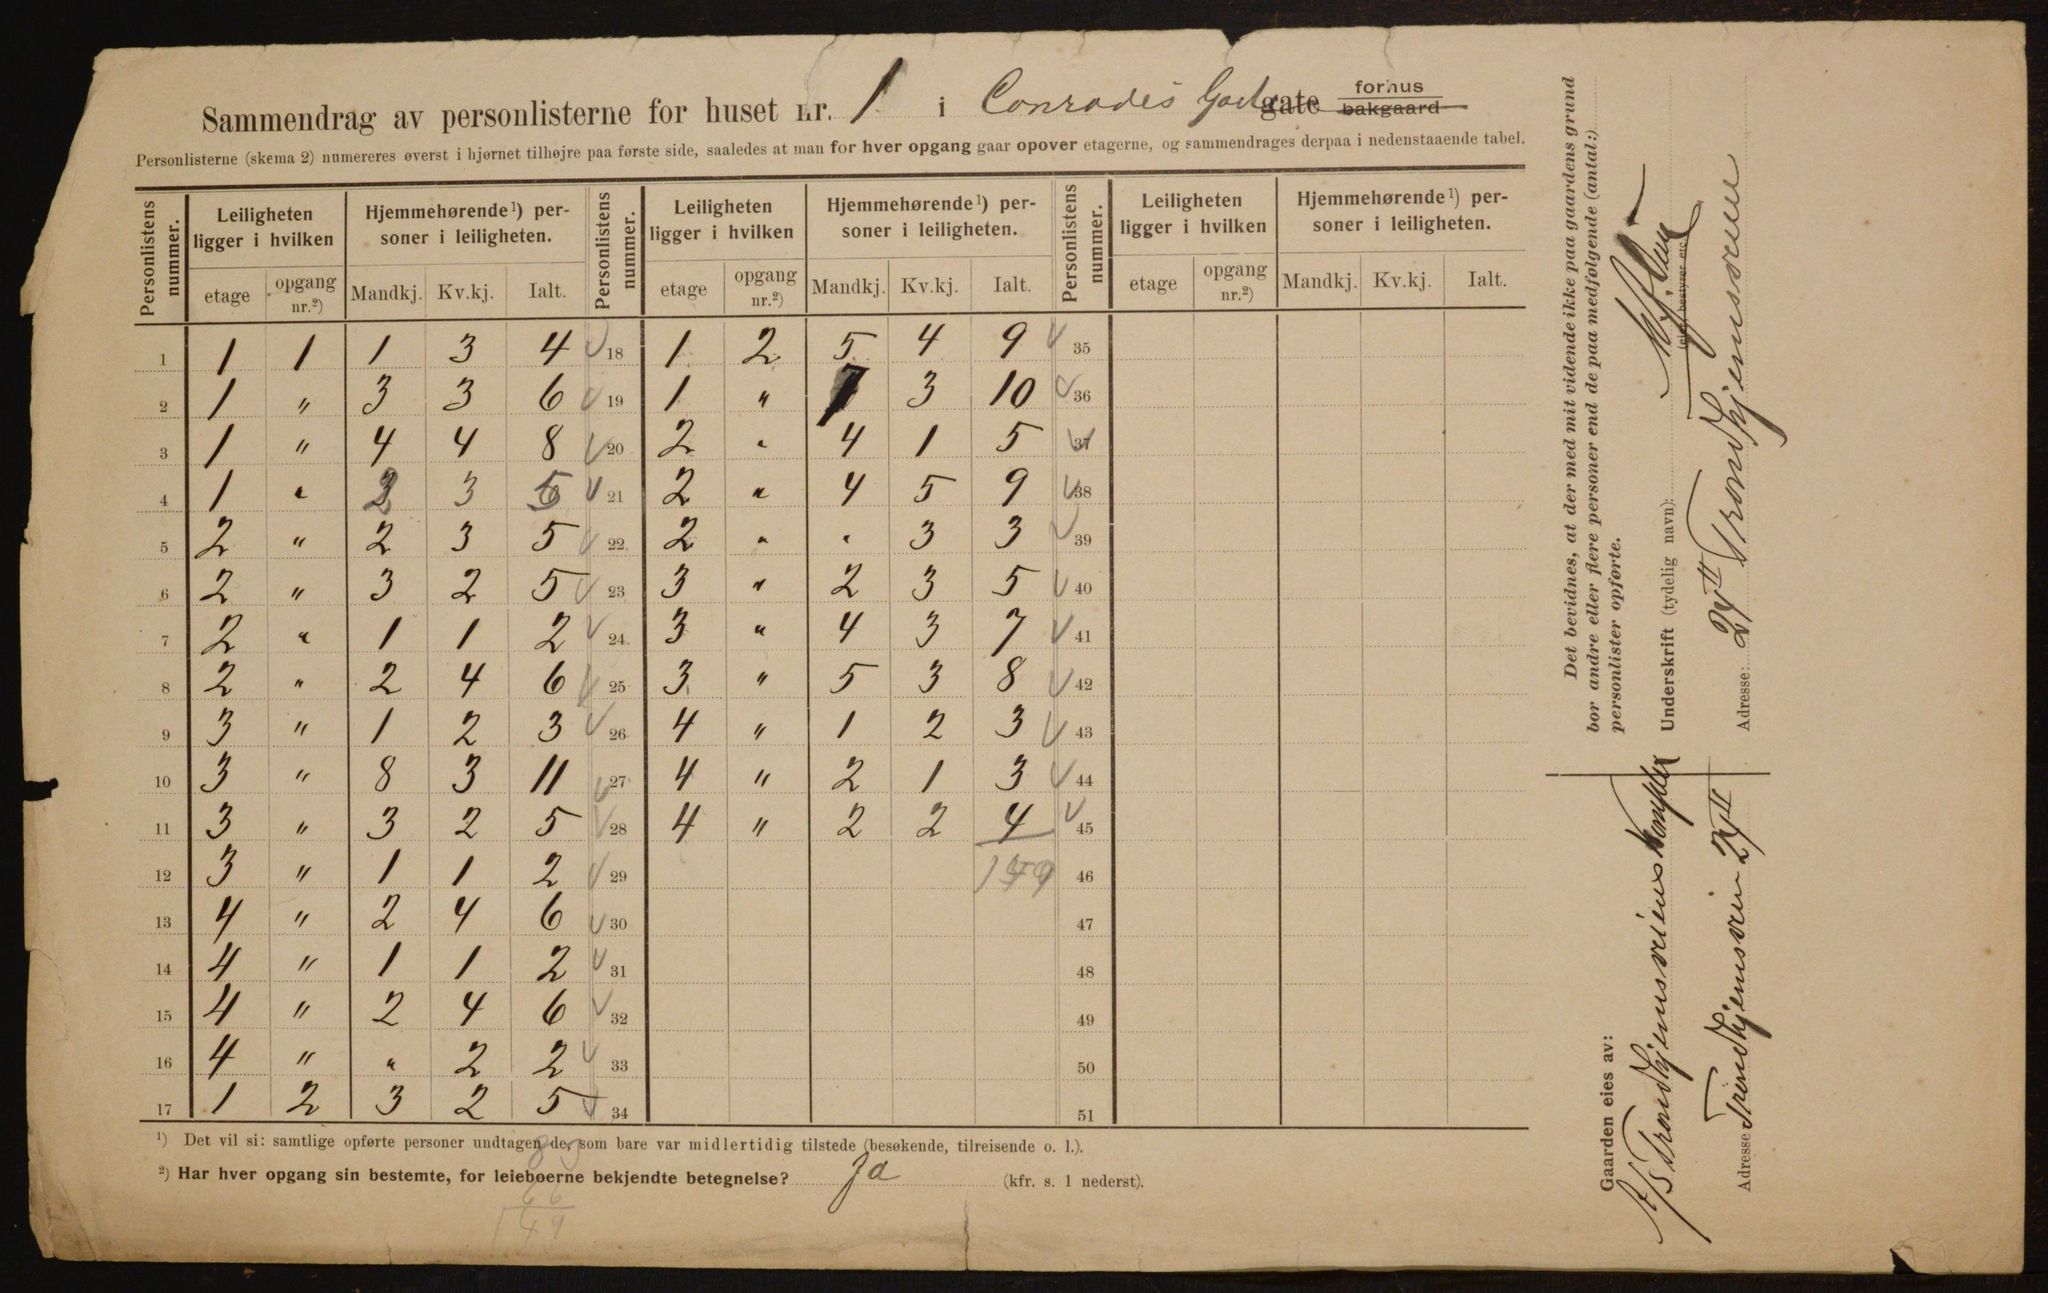 Sammendrag av personlisterne for huset nr. 1 i Conrades Gade gate forhus bakgaard
Personlisterne (skema 2) numereres øverst i hjørnet tilhøjre paa første side, saaledes at man for hver opgang gaar opover etagerne, og sammendrages derpaa i nedenstaaende tabel.
Personlistens nummer. Leiligheten ligger i hvilken Hjemmehørende ¹) personer i leiligheten. Personlistens nummer. Leiligheten ligger i hvilken Hjemmehørende ¹) personer i leiligheten. Personlistens nummer. Leiligheten ligger i hvilken Hjemmehørende ¹) personer i leiligheten.
etage opgang nr.²) Mandkj. Kv.kj. Ialt. etage opgang nr.²) Mandkj. Kv.kj. Ialt. etage opgang nr.²) Mandkj. Kv.kj. Ialt.
1 1 1 1 3 4 18 1 2 5 4 9 35
2 1 " 3 3 6 19 1 " 7 3 10 36
3 1 " 4 4 8 20 2 " 4 1 5 37
4 1 " 3 5 21 2 " 4 5 9 38
5 2 " 2 3 5 22 2 " " 3 3 39
6 2 " 3 2 5 23 3 " 2 3 5 40
7 2 " 1 1 2 24 3 " 4 3 7 41
8 2 " 2 4 6 25 3 " 5 3 8 42
9 3 " 1 2 3 26 4 " 1 2 3 43
10 3 " 8 3 11 27 4 " 2 1 3 44
11 3 " 3 2 5 28 4 " 2 2 4 45
12 3 " 1 1 2 29 149 46
13 4 " 2 4 6 30 47
14 4 " 1 1 2 31 48
15 4 " 2 4 6 32 49
16 4 " " 2 2 33 50
17 1 2 3 2 5 34 51
¹) Det vil si: samtlige opførte personer undtagen de, som bare var midlertidig tilstede (besøkende, tilreisende o. l.).
83
²) Har hver opgang sin bestemte, for leieboerne bekjendte betegnelse? Ja (kfr. s. 1 nederst).
66
149
Det bevidnes, at der med mit vidende ikke paa gaardens grund
bor andre eller flere personer end de paa medfølgende (antal:)
personlister opførte.
Underskrift (tydelig navn):
(eier, bestyrer etc.)
Adresse: 27 II Trondhjemsveien
Gaarden eies av:
A/S Trondhjemsveiens Komplex
Adresse Trondhjemsveien 27 II